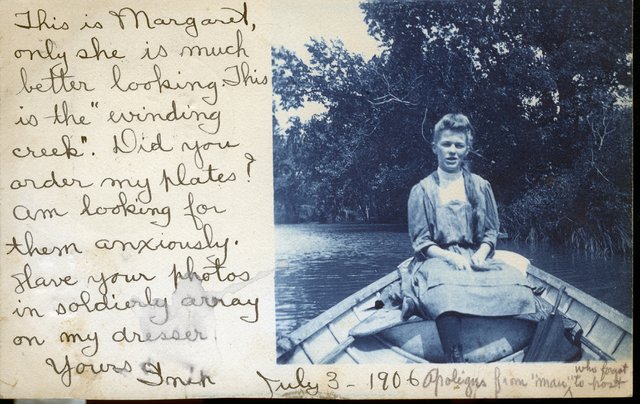 This is Margaret,
only she is much
better looking. This
is the "winding
creek". Did you
order my plates?
Am looking for
them anxiously.
Have your photos
in soldierly array
on my dresser.
Yours
July 3 - 1906
Apologies from "man," who forgot
to post